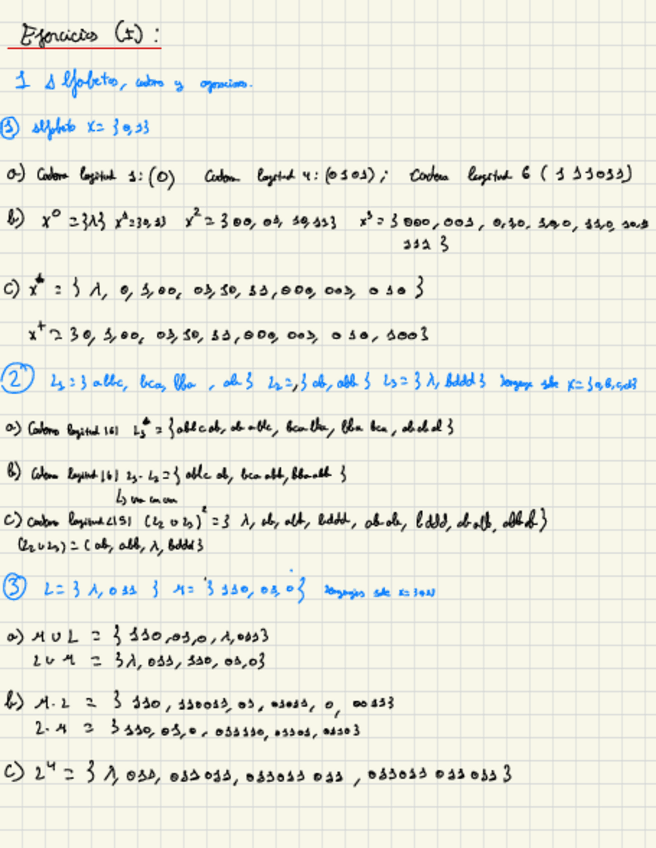 Ejercicios (I) :
1 Alfabetos, cadenas y operaciones.
① alfabeto X = {0,1}
a) Cadena longitud 1: (0) Cadena longitud 4: (0101); Cadena longitud 6 (111011)
b) X⁰ = {λ} X¹={0,1} X² = {00, 01, 10, 11} X³ = {000, 001, 010, 100, 110, 101
111 }
c) X* = { λ, 0, 1, 00, 01, 10, 11, 000, 001, 010 }
X⁺ = {0, 1, 00, 01, 10, 11, 000, 001, 010, 100}
② L₁ = {abbc, bca, bba, ab} L₂ = {ab, abb} L₃ = {λ, bddd} lenguajes sobre X = {a,b,c,d}
a) Cadenas longitud |6| L₁* = {abbcab, ababbc, bcabba, bbabca, ababab}
b) Cadenas longitud |6| L₁·L₂ = {abbcab, bcaabb, bbaabb }
c) Cadenas longitud <|5| (L₂ ∪ L₃)² = { λ, ab, abb, bddd, abab, bddd, ababb, abbab}
(L₂ ∪ L₃) = {ab, abb, λ, bddd}
③ L = { λ, 011 } M = {110, 01, 0} lenguajes sobre X={0,1}
a) M ∪ L = {110, 01, 0, λ, 011}
L ∪ M = {λ, 011, 110, 01, 0}
b) M·L = {110, 110011, 01, 01011, 0, 0011}
L·M = {110, 01, 0, 011110, 01101, 0110}
c) L⁴ = { λ, 011, 011011, 011011011, 011011011011 }